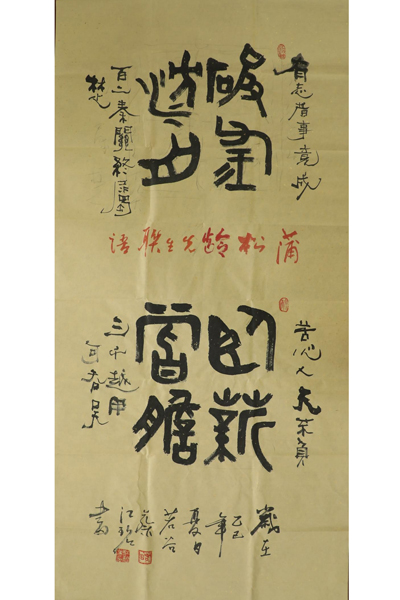 有志者事竟成
破釜
沉舟
百二秦關終屬
楚
蒲松齡先生聯語
苦心人天不負
臥薪
嘗膽
三千越甲
可吞吴
歲在
年
夏日
若谷
書